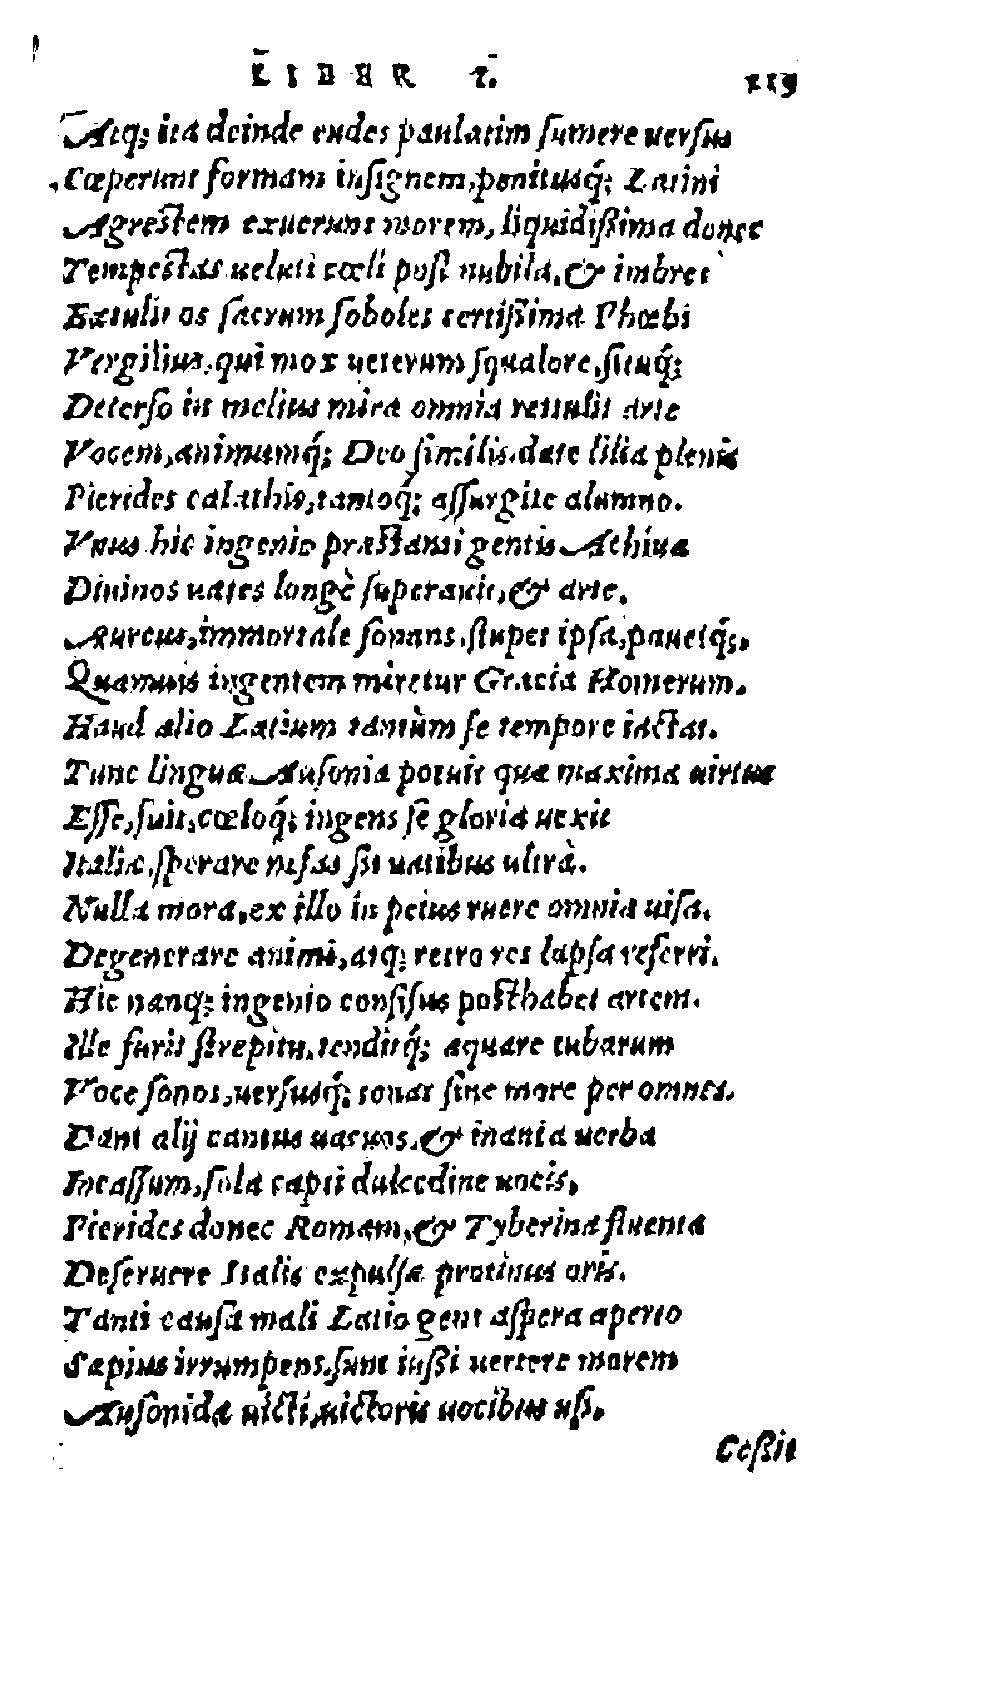 LIBER I. 119
Atq; ita deinde rudes paulatim ſumere uerſus
Cœperunt formam inſignem, penitusq́; Latini
Agreſtem exuerunt morem, liquidiſſima donec
Tempeſtas ueluti cœli poſt nubila, & imbres
Extulit os ſacrum ſoboles certiſſima Phœbi
Vergilius, qui mox ueterum ſqualore, ſituq́;
Deterſo in melius mira omnia rettulit arte
Vocem, animumq́; Deo ſimilis. date lilia plenis
Pierides calathis, tantoq́; aſſurgite alumno.
Vnus hic ingenio præſtanti gentis Achiuæ
Diuinos uates longè ſuperauit, & arte.
Aureus, immortale ſonans. ſtupet ipſa, pauetq́;.
Quamuis ingentem miretur Græcia Homerum.
Haud alio Latium tantùm ſe tempore iactat.
Tunc linguæ Auſoniæ potuit quæ maxima uirtus
Eſſe, fuit, cœloq́; ingens ſe gloria uexit
Italiæ. ſperare nefas ſit uatibus ultrà.
Nulla mora, ex illo in peius ruere omnia uiſa.
Degenerare animi, atq; retro res lapſa referri.
Hic nanq; ingenio confiſus poſthabet artem.
Ille furit ſtrepitu, tenditq́; æquare tubarum
Voce ſonos, uerſusq́; tonat ſine more per omnes.
Dant alij cantus uacuos, & inania uerba
Incaſſum, ſola capti dulcedine uocis,
Pierides donec Romam, & Tyberina fluenta
Deſeruere Italis expulſæ protinus oris.
Tanti cauſa mali Latio gens aſpera aperto
Sæpius irrumpens. ſunt iuſſi uertere morem
Auſonidæ uicti, uictoris uocibus uſi.
Ceſſit